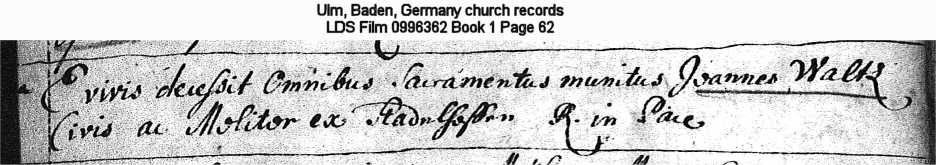 Ulm, Baden, Germany church records
LDS Film 0996362 Book 1 Page 62
E vivis decessit Omnibus Sacramentus munitus Joannes Waltz
Civis ac Molitor ex Stadelhoffen R. in Pace